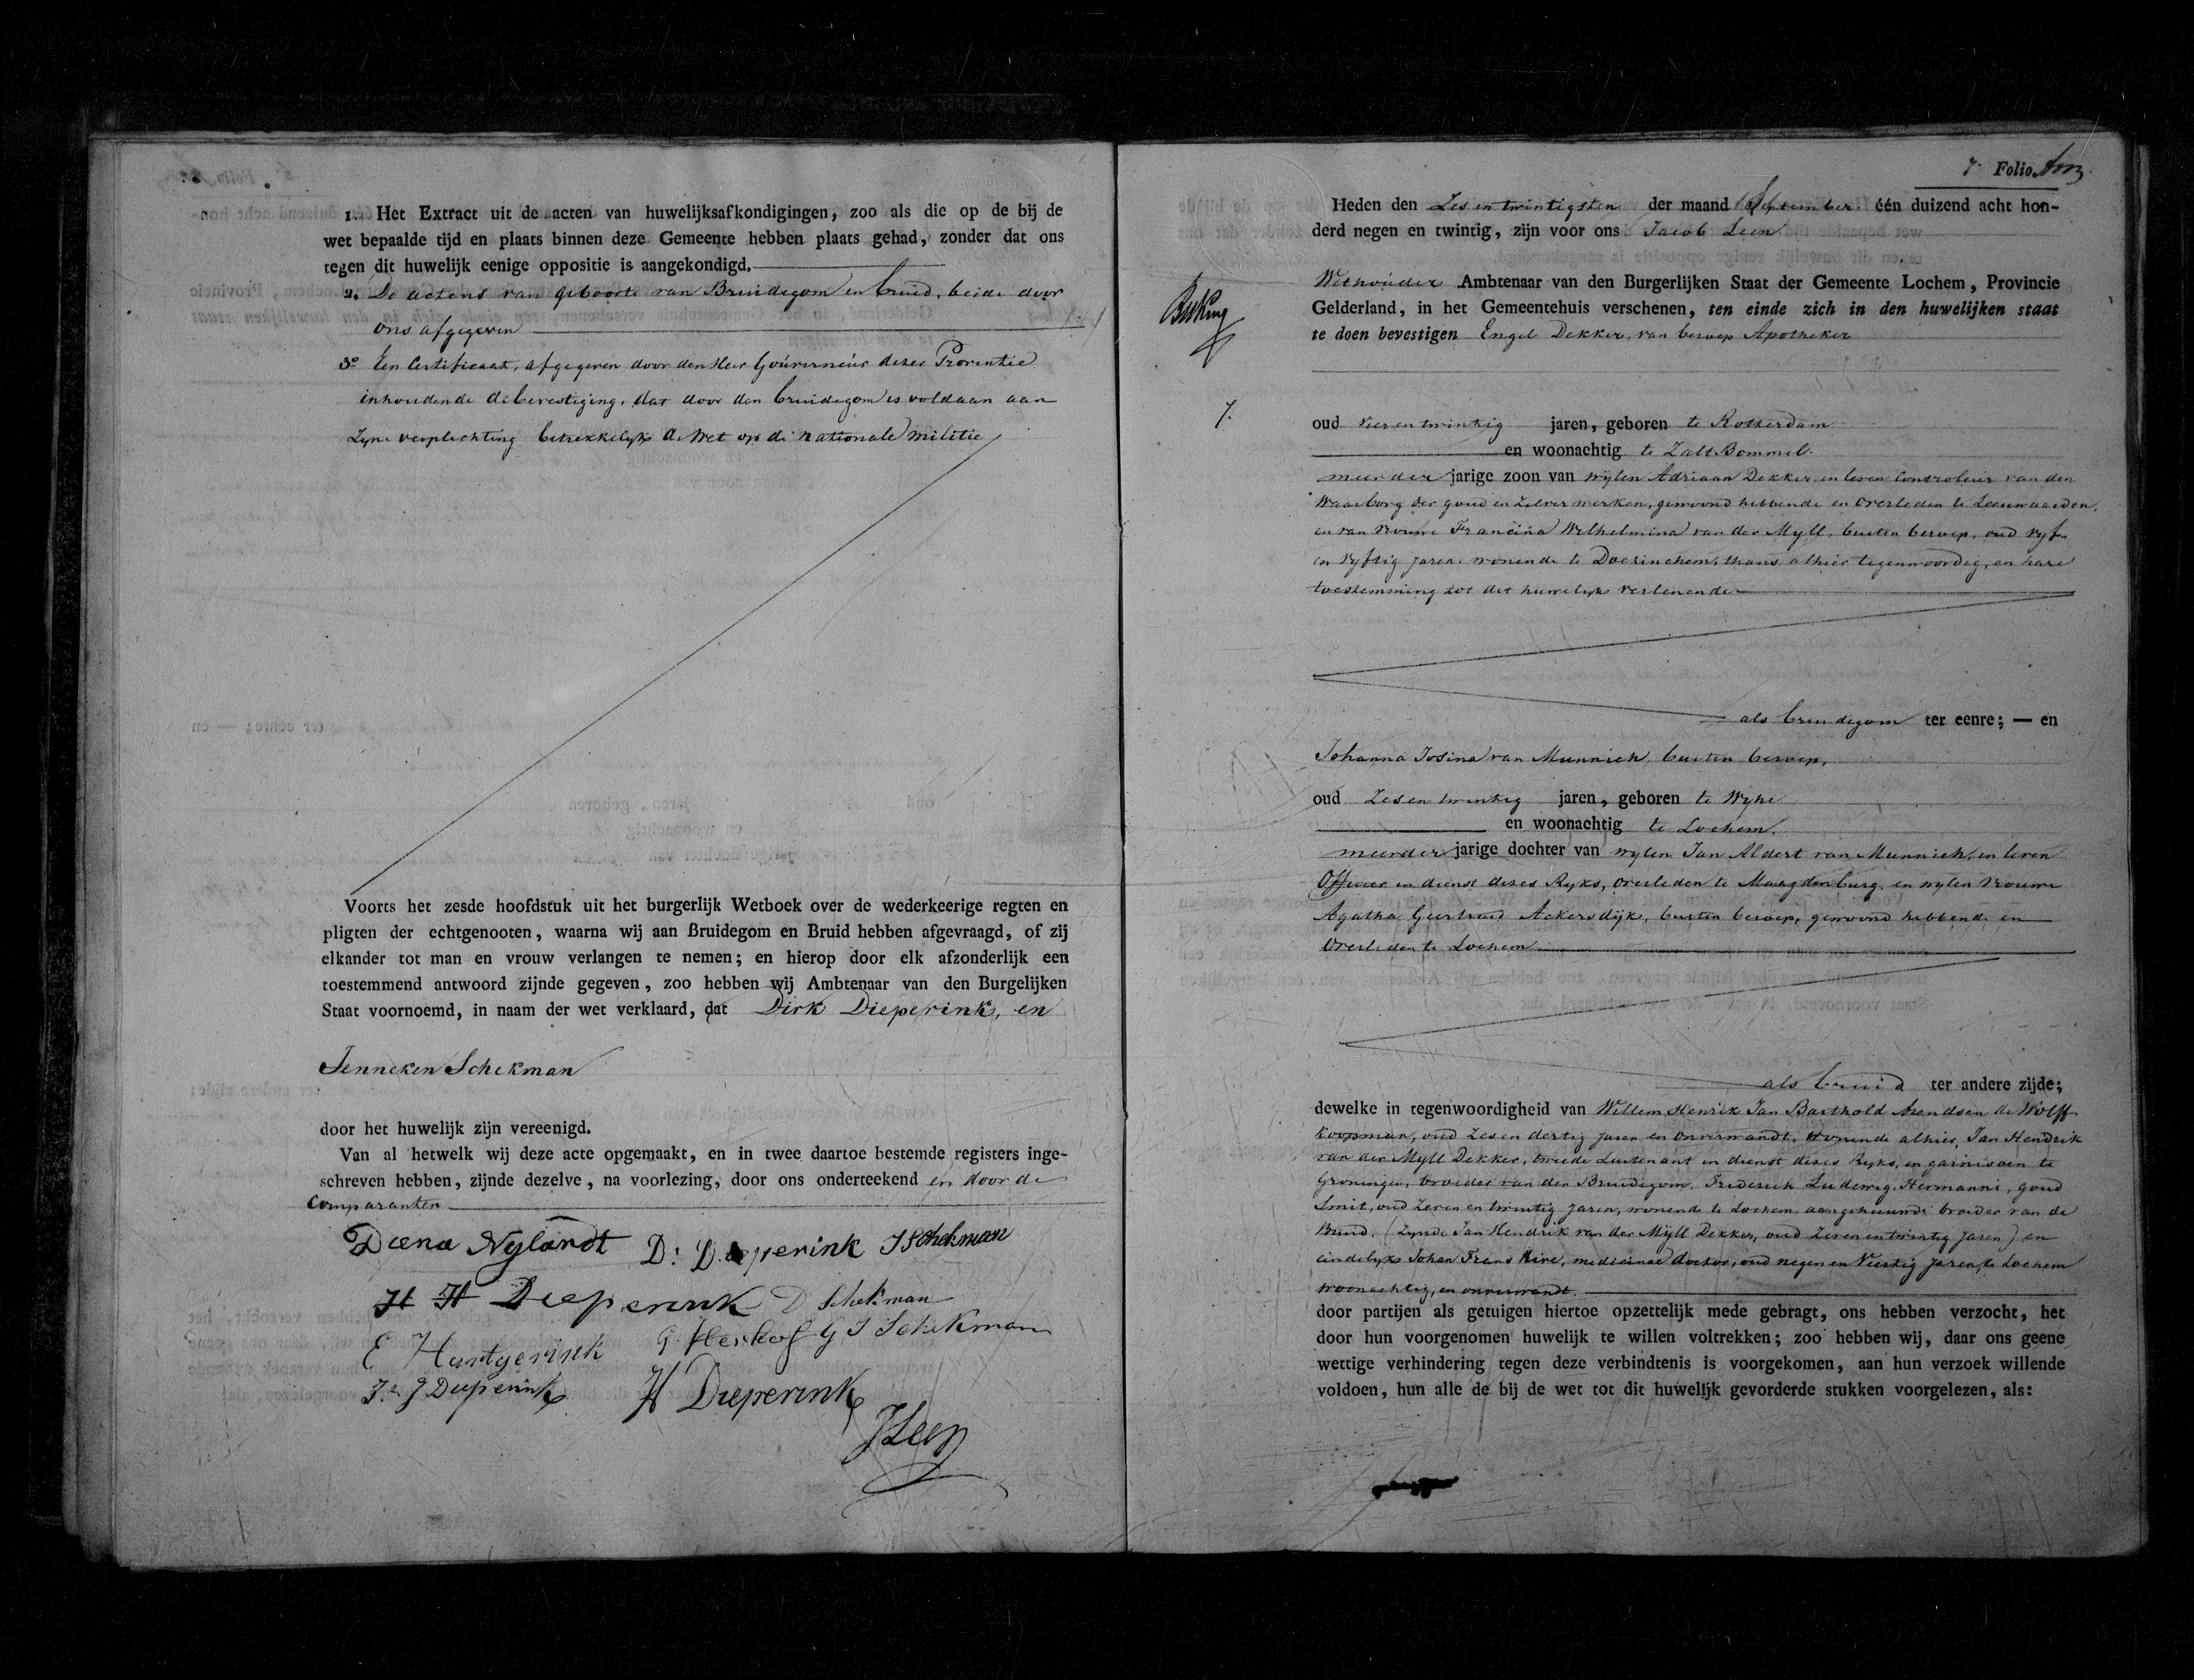 1. Het Extract uit de acten van huwelijksafkondigingen, zoo als die op de bij de
wet bepaalde tijd en plaats binnen deze Gemeente hebben plaats gehad, zonder dat ons
tegen dit huwelijk eenige oppositie is aangekondigd.
2. De actens van geboorte van Bruidegom en bruid, beide door
ons afgegeven
3o Een Certificaat, afgegeven door den Heer Gouverneur dezer Provintie
inhoudende de bevestiging, dat door den bruidegom is voldaan aan
zyne verplechting betrekkelyk de wet op de nationale militie
Voorts het zesde hoofdstuk uit het burgerlijk Wetboek over de wederkeerige regten en
pligten der echtgenooten, waarna wij aan Bruidegom en Bruid hebben afgevraagd, of zij
elkander tot man en vrouw verlangen te nemen; en hierop door elk afzonderlijk een
toestemmend antwoord zijnde gegeven, zoo hebben wij Ambtenaar van den Burgelijken
Staat voornoemd, in naam der wet verklaard, dat Dirk Dieperink, en
Jenneken Schekman
door het huwelijk zijn vereenigd.
Van al hetwelk wij deze acte opgemaakt, en in twee daartoe bestemde registers inge-
schreven hebben, zijnde dezelve, na voorlezing, door ons onderteekend en door de
Comparanten
Diena Nylandt D. Dieperink J Schekman
H H Dieperink D Schekman
E Hartgerink G. Heskof G J Schekman
J. J Dieperink H Dieperink
J Leen
7. Folio
Heden den Zes en twintigsten der maand September één duizend acht hon-
derd negen en twintig, zijn voor ons Jacob Leen
Wethouder Ambtenaar van den Burgerlijken Staat der Gemeente Lochem, Provincie
Gelderland, in het Gemeentehuis verschenen, ten einde zich in den huwelijken staat
te doen bevestigen Engel Dekker, van beroep Apotheker
7.
oud vier en twintig jaren, geboren te Rotterdam
en woonachtig te Zalt Bommel.
meerder jarige zoon van wylen Adriaan Dekker, in leven Controleur van den
Waarborg der goud en zilver werken, gewoond hebbende en overleden te Leeuwaarden,
en van vrouwe Francina Wilhelmina van der Myll, buiten beroep, oud vyf
en vyftig jaren, wonende te Doetinchem, thans alhier tegenwoordig, en hare
toestemming tot dit huwelyk verlenende
als bruidegom ter eenre; — en
Johanna Josina van Munnich, buiten beroep,
oud Zes en twintig jaren, geboren te Wyhe
en woonachtig te Lochem.
meerder jarige dochter van wylen Jan Aldert van Munnich, in leven
Officier in dienst dezes Ryks, overleden te Maagdenburg, en wylen vrouwe
Agatha Geertruid Ackersdijk, buiten beroep, gewoond hebbende en
overleden te Lochem
als bruid ter andere zijde;
dewelke in tegenwoordigheid van Willem Henrik Jan Barthold Arendsen de Wolff
Koopman, oud zes en dertig jaren en onverwandt, wonende alhier, Jan Hendrik
van der Myll Dekker, tweede Luitenant in dienst dezes Ryks, en garnisoen te
Groningen, broeder van den Bruidegom, Frederick Ludewig Hermanni, goud
Smit, oud zeven en twintig jaren, wonende te Lochem, aangehuwde broeder van de
Bruid, (zynde Jan Hendrik van der Myll Dekker, oud zeven en twintig jaren) en
eindelyk Johan Frans, medicinae doctor, oud negen en veertig jaren, te Lochem
woonachtig, en onverwandt.
door partijen als getuigen hiertoe opzettelijk mede gebragt, ons hebben verzocht, het
door hun voorgenomen huwelijk te willen voltrekken; zoo hebben wij, daar ons geene
wettige verhindering tegen deze verbindtenis is voorgekomen, aan hun verzoek willende
voldoen, hun alle de bij de wet tot dit huwelijk gevorderde stukken voorgelezen, als: